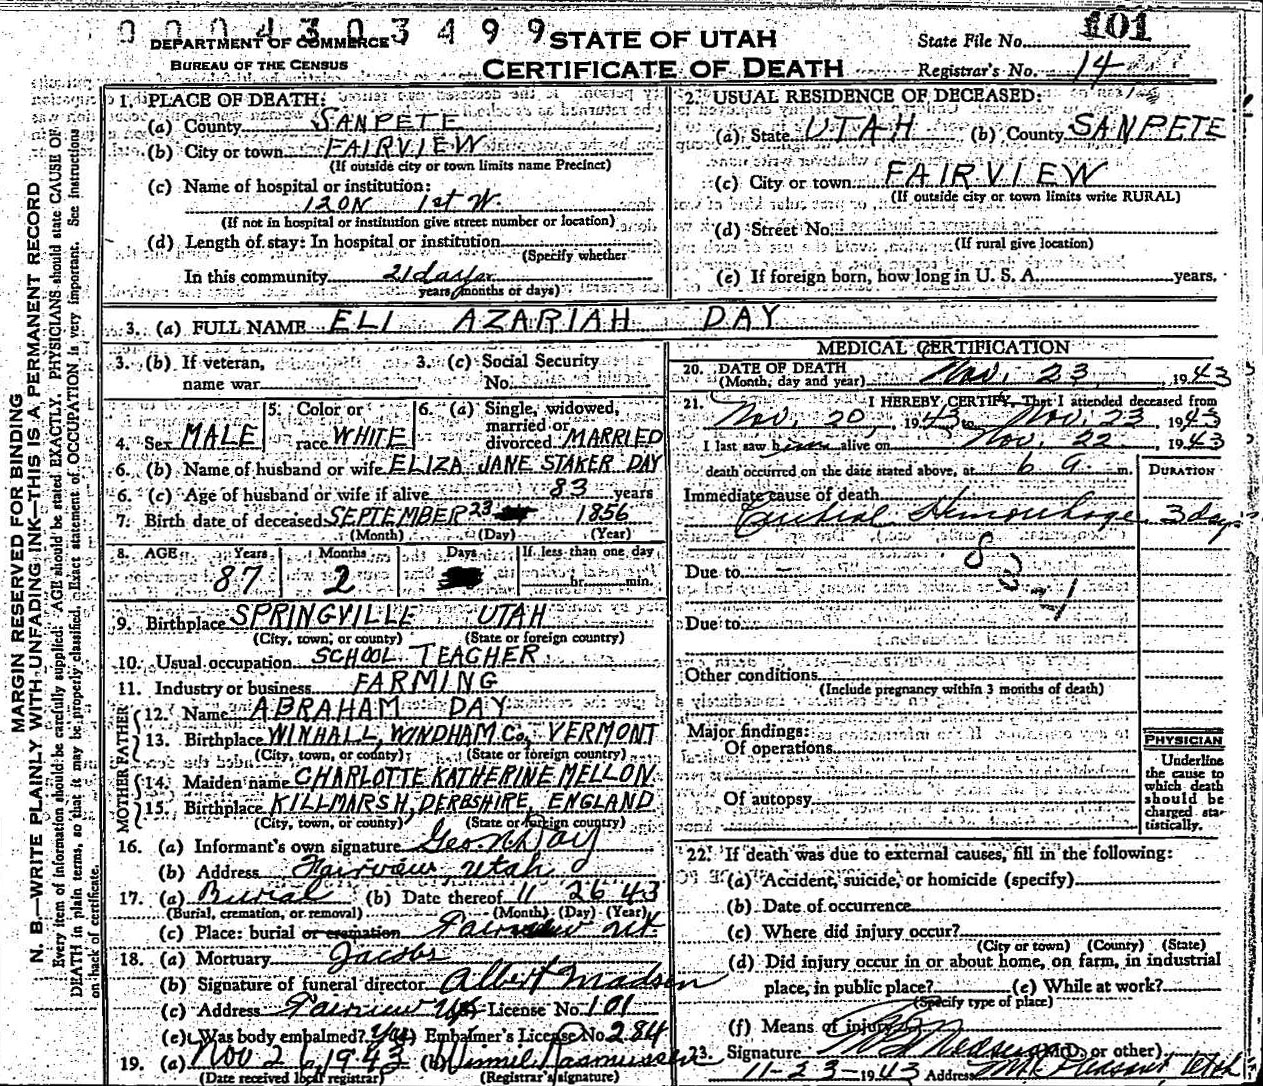 000430 3499
DEPARTMENT OF COMMERCE
BUREAU OF THE CENSUS
STATE OF UTAH
CERTIFICATE OF DEATH
State File No. 101
Registrar's No. 14
MARGIN RESERVED FOR BINDING
N. B.—WRITE PLAINLY WITH UNFADING INK—THIS IS A PERMANENT RECORD
Every item of information should be carefully supplied. AGE should be stated EXACTLY. PHYSICIANS should state CAUSE OF
DEATH in plain terms, so that it may be properly classified. Exact statement of OCCUPATION is very important. See instructions
on back of certificate.
1. PLACE OF DEATH:
(a) County SANPETE
(b) City or town FAIRVIEW
(If outside city or town limits name Precinct)
(c) Name of hospital or institution:
120N 1st W.
(If not in hospital or institution give street number or location)
(d) Length of stay: In hospital or institution
(Specify whether
In this community 21 days
years, months or days)
2. USUAL RESIDENCE OF DECEASED:
(a) State UTAH (b) County SANPETE
(c) City or town FAIRVIEW
(If outside city or town limits write RURAL)
(d) Street No.
(If rural give location)
(e) If foreign born, how long in U. S. A. years.
3. (a) FULL NAME ELI AZARIAH DAY
3. (b) If veteran, name war
3. (c) Social Security No.
4. Sex MALE
5. Color or race WHITE
6. (a) Single, widowed, married or divorced MARRIED
6. (b) Name of husband or wife ELIZA JANE STAKER DAY
6. (c) Age of husband or wife if alive 83 years
7. Birth date of deceased SEPTEMBER 23 1856
(Month) (Day) (Year)
8. AGE Years Months Days If less than one day
87 2 hr. min.
9. Birthplace SPRINGVILLE UTAH
(City, town, or county) (State or foreign country)
10. Usual occupation SCHOOL TEACHER
11. Industry or business FARMING
FATHER
12. Name ABRAHAM DAY
13. Birthplace WINHALL, WINDHAM Co., VERMONT
(City, town, or county) (State or foreign country)
MOTHER
14. Maiden name CHARLOTTE KATHERINE MELLON
15. Birthplace KILLMARSH, DERBSHIRE, ENGLAND
(City, town, or county) (State or foreign country)
16. (a) Informant's own signature Geo. N. Day
(b) Address Fairview, Utah
17. (a) Burial (b) Date thereof 11 26 43
(Burial, cremation, or removal) (Month) (Day) (Year)
(c) Place: burial or cremation Fairview Ut.
18. (a) Mortuary Jacobs
(b) Signature of funeral director Albert Madsen
(c) Address Fairview Ut License No. 101
(e) Was body embalmed? Yes Embalmer's License No. 284
19. (a) Nov 26, 1943 (b) Rasmussen
(Date received local registrar) (Registrar's signature)
MEDICAL CERTIFICATION
20. DATE OF DEATH
(Month, day and year) Nov. 23, 1943
21. I HEREBY CERTIFY, That I attended deceased from
Nov. 20, 1943 to Nov. 23 1943
I last saw him alive on Nov. 22 1943
death occurred on the date stated above, at 6 a. m.
DURATION
Immediate cause of death
Cerebral Hemorrhage 3 days
83-1
Due to
Due to
Other conditions
(Include pregnancy within 3 months of death)
Major findings:
Of operations
Of autopsy
PHYSICIAN
Underline
the cause to
which death
should be
charged sta-
tistically.
22. If death was due to external causes, fill in the following:
(a) Accident, suicide, or homicide (specify)
(b) Date of occurrence
(c) Where did injury occur?
(City or town) (County) (State)
(d) Did injury occur in or about home, on farm, in industrial
place, in public place? (e) While at work?
(Specify type of place)
(f) Means of injury
23. Signature (M.D. or other)
11-23-1943 Address Mt Pleasant Utah